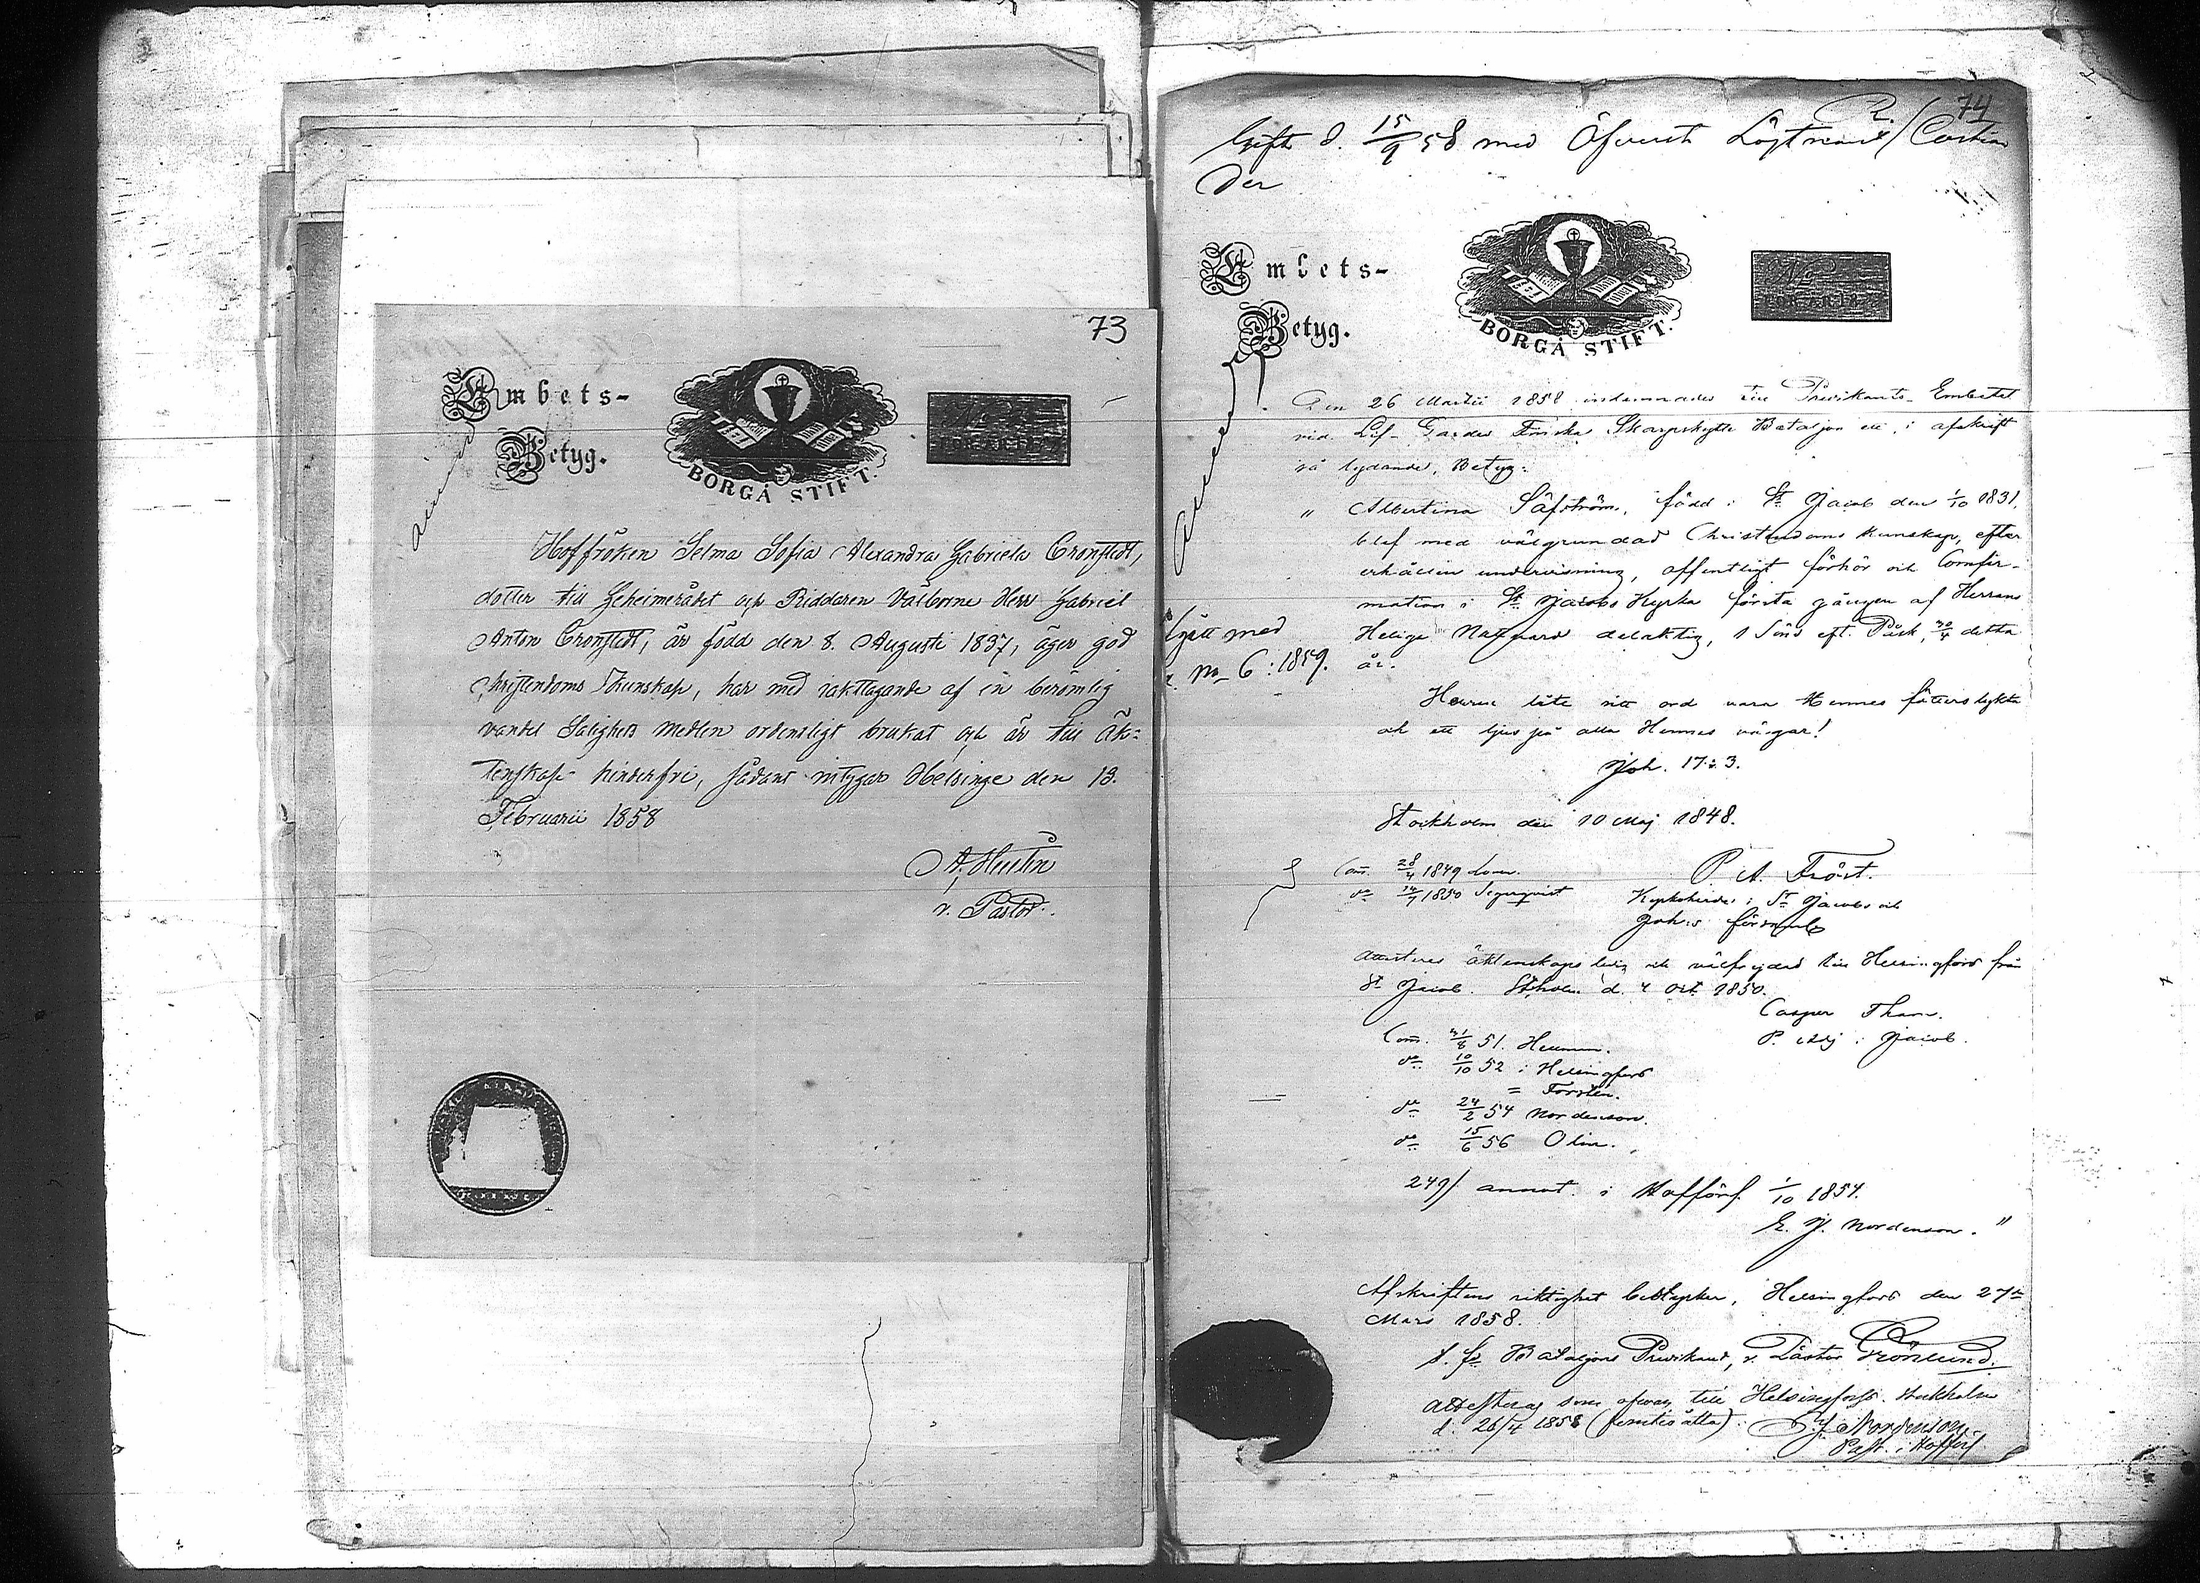 73
Ambets-
Betyg.
BORGÅ STIFT.
No
Hoffröken Selma Sofia Alexandra Gabriela Cronstedt,
dotter till Geheimerådet och Riddaren Välborne Herr Gabriel
Anton Cronstedt, är född den 8. Augusti 1837, äger god
Christendoms Kunskap, har med iakttagande af en berömlig
vandel Salighets medlen ordentligt brukat och är till äk-
tenskap hinderfri, sådant intygar Helsinge den 13.
Februarii 1858
v. Pastor.
74
Gift d. 15/9 58 med Öfverste Löjtnant
Der
Ambets-
Betyg.
BORGÅ STIFT.
No
FÖR ÅR 18
Den 26 Martii 1858 inlemnades till Predikants-Embetet
vid Lif-Gardes Finska Skarpskytte Bataljon ett, i afskrift
så lydande, Betyg:
" Albertina Säfström, född i St Jacob den 1/10 1831,
blef med välgrundad Christendoms kunskap, efter
erhållen undervisning, offentligt förhör och Confir-
mation i St Jacobs Kyrka första gången af Herrans
Heliga Nattvard delaktig, 1 Sönd. eft. Påsk, 30/4 detta
år.
med
No 6: 1859.
Herren låte sitt ord vara Hennes fötters lykta
och ett ljus på alla Hennes vägar!
Joh. 17: 3.
Stockholm den 10 Maj 1848.
Com. 28/4 1849
do 14/7 1850 Segerqvist
P. A. Fröst.
Kyrkoherde i St Jacobs och
Joh:s församl.
Attesteras äktenskaps ledig och välfrejdad till Helsingfors från
St Jacob. Stholm d. 4 Oct. 1850.
Casper Tham.
P. Adj. i Jacob.
Com. 31/8 51.
do 10/10 52 i Helsingfors
= Forstén.
do 24/2 54 Nordenson.
do 15/6 56 Olin.
249/ annot. i Hofförs. 1/10 1854.
E. J. Nordenson. "
Afskriftens riktighet betygar, Helsingfors den 27de
Mars 1858.
t. f. Bataljons Predikant, v. Pastor Grönlund.
Attesteras som ofvan, till Helsingfors. Stockholm
d. 26/4 1858 (femtioåtta). E. J. Nordenson
Past. i Hofförs.